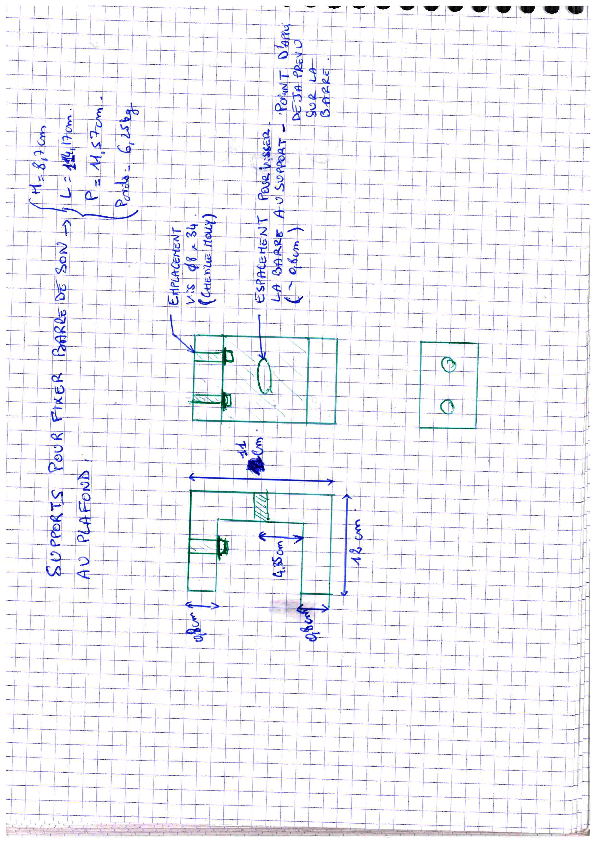 SUPPORTS POUR FIXER BARRE DE SON →
AU PLAFOND :
H = 8,7cm
L = 114,17cm.
P = 11,57cm.
Poids = 6,25kg.
EMPLACEMENT
VIS Ø8 x 34
(CHEVILLE MOLLY)
ESPACEMENT POUR VISSER
LA BARRE AU SUPPORT - POINT D'APPUI
DEJA PREVU
SUR LA
BARRE.
(~ 0,8cm)
11
cm.
0,8cm
4.35cm
0,8cm
12 cm.